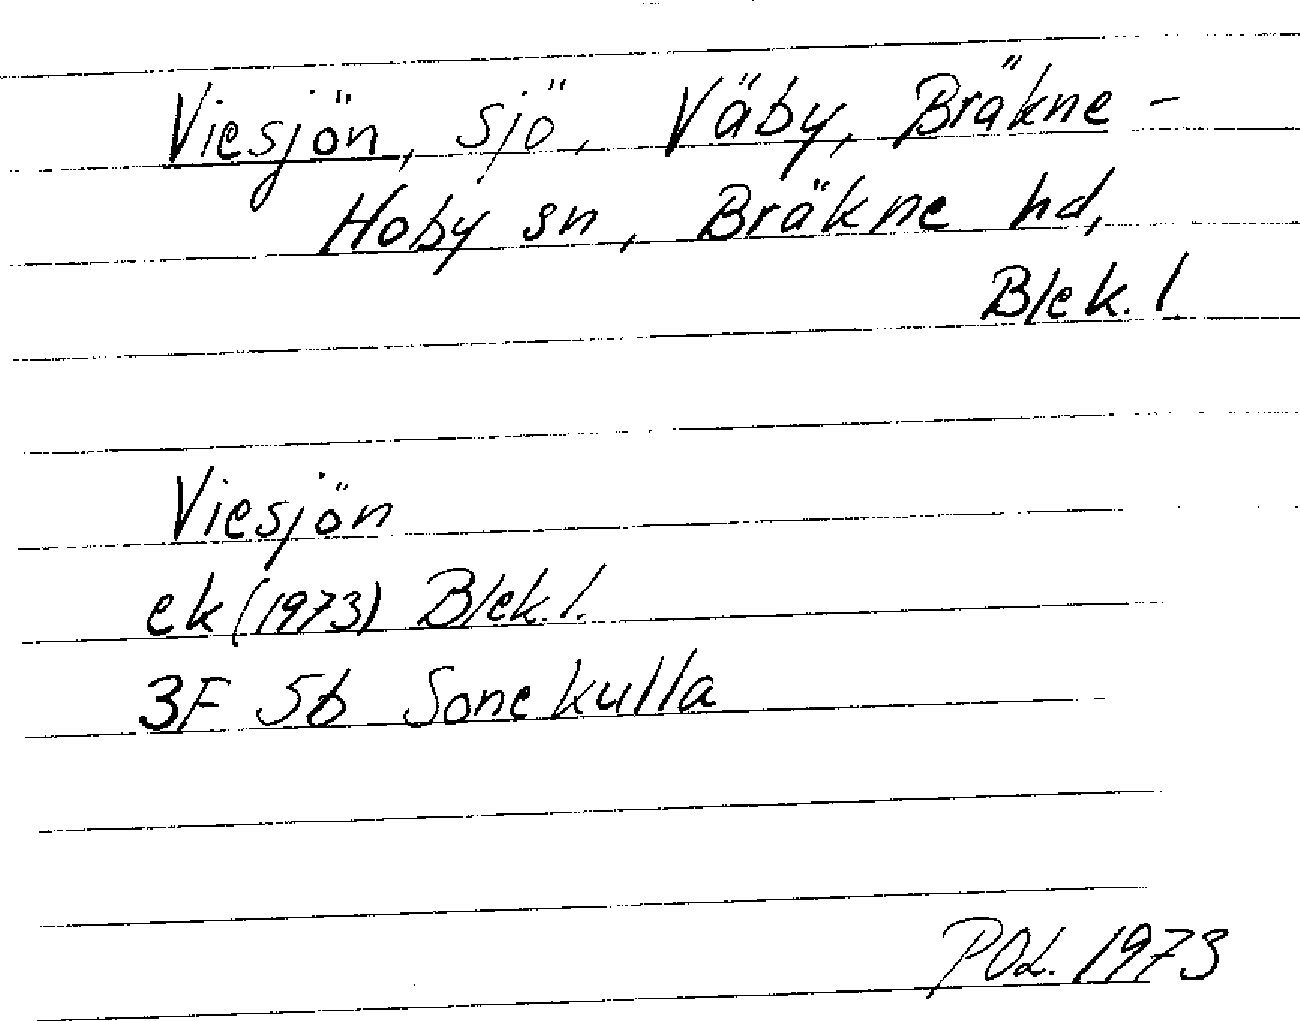 Viesjön, sjö, Väby, Bräkne -
Hoby sn, Bräkne hd,
Blek. l
Viesjön
ek (1973) Blek. l.
3F 5b Sonekulla
POL. 1973